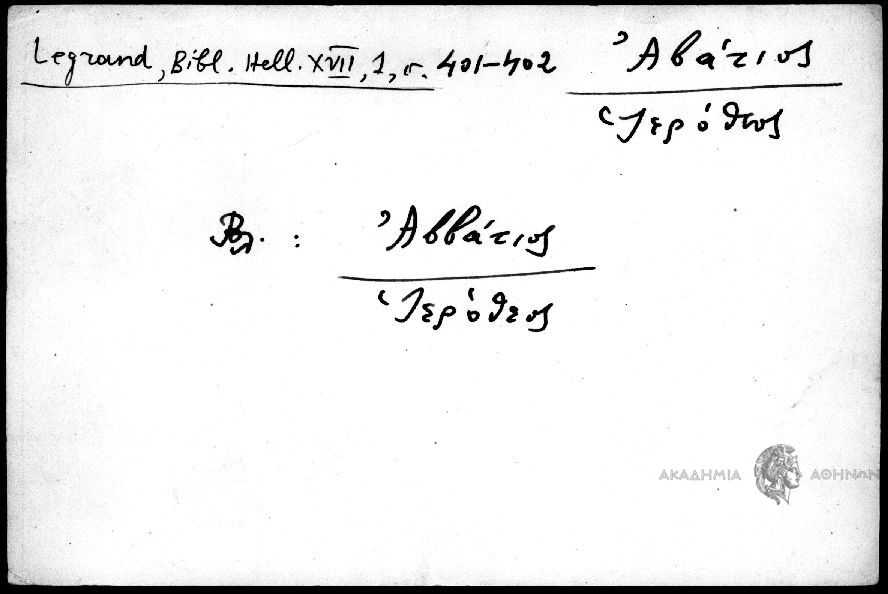 Legrand, Bibl. Hell. XVII, 1, σ. 401-402
Ἀβάτιος
Ἱερόθεος
Βλ. : Ἀββάτιος
Ἱερόθεος
ΑΚΑΔΗΜΙΑ ΑΘΗΝΩΝ